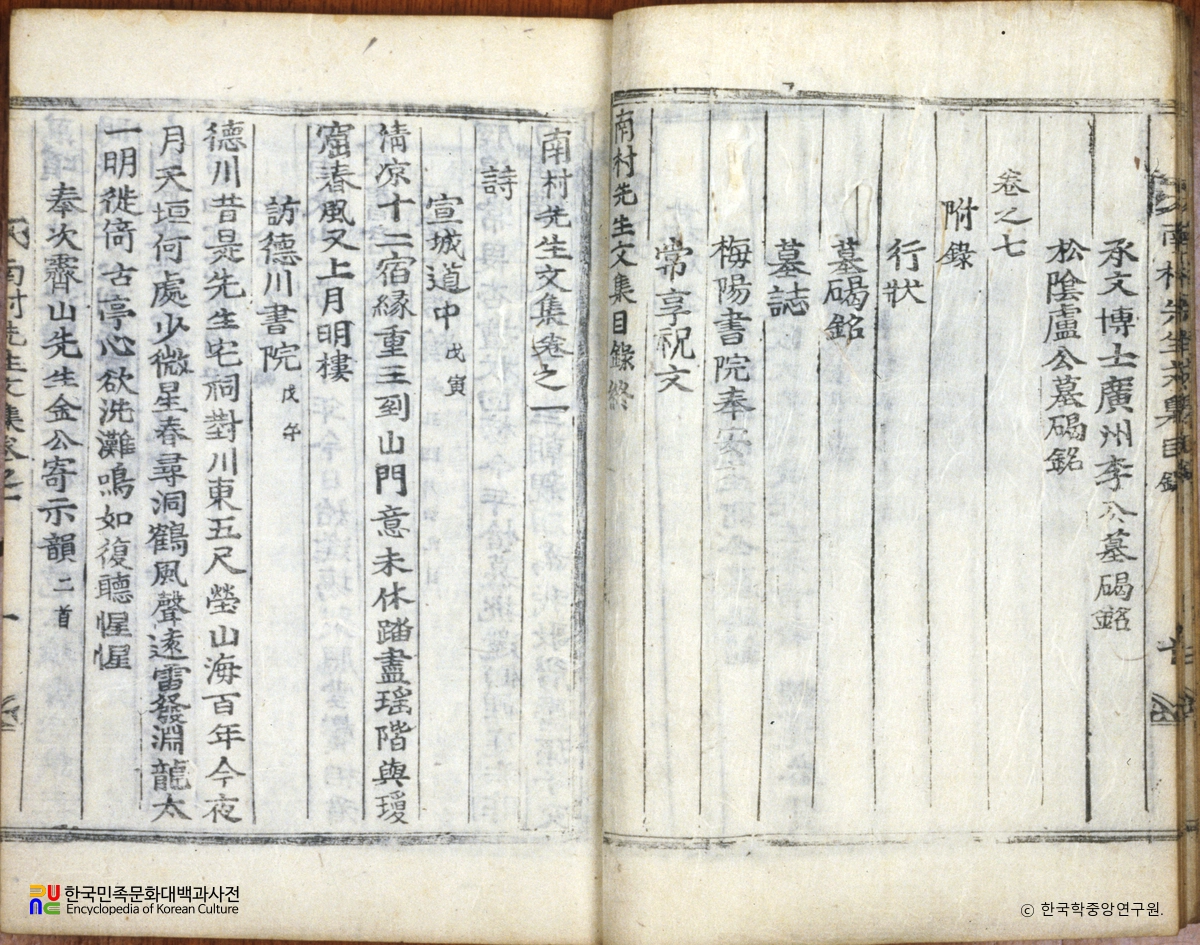 承文博士廣州李公墓碣銘
松陰盧公墓碣銘
卷之七
附錄
行狀
墓碣銘
墓誌
梅陽書院奉安文
常享祝文
南村先生文集目錄終
南村先生文集卷之一
詩
宣城道中 戊寅
淸凉十二宿緣重王到山門意未休踏盡瑤階與瓊
窟春風又上月明樓
訪德川書院 戊午
德川昔是先生宅祠對川東五尺塋山海百年今夜
月天垣何處少微星春尋洞鶴風聲遠雷發淵龍太
一明徙倚古亭心欲洗灘鳴如復聽惺惺
奉次霽山先生金公寄示韻 二首
南村先生文集卷之一
한국민족문화대백과사전
Encyclopedia of Korean Culture
ⓒ 한국학중앙연구원.